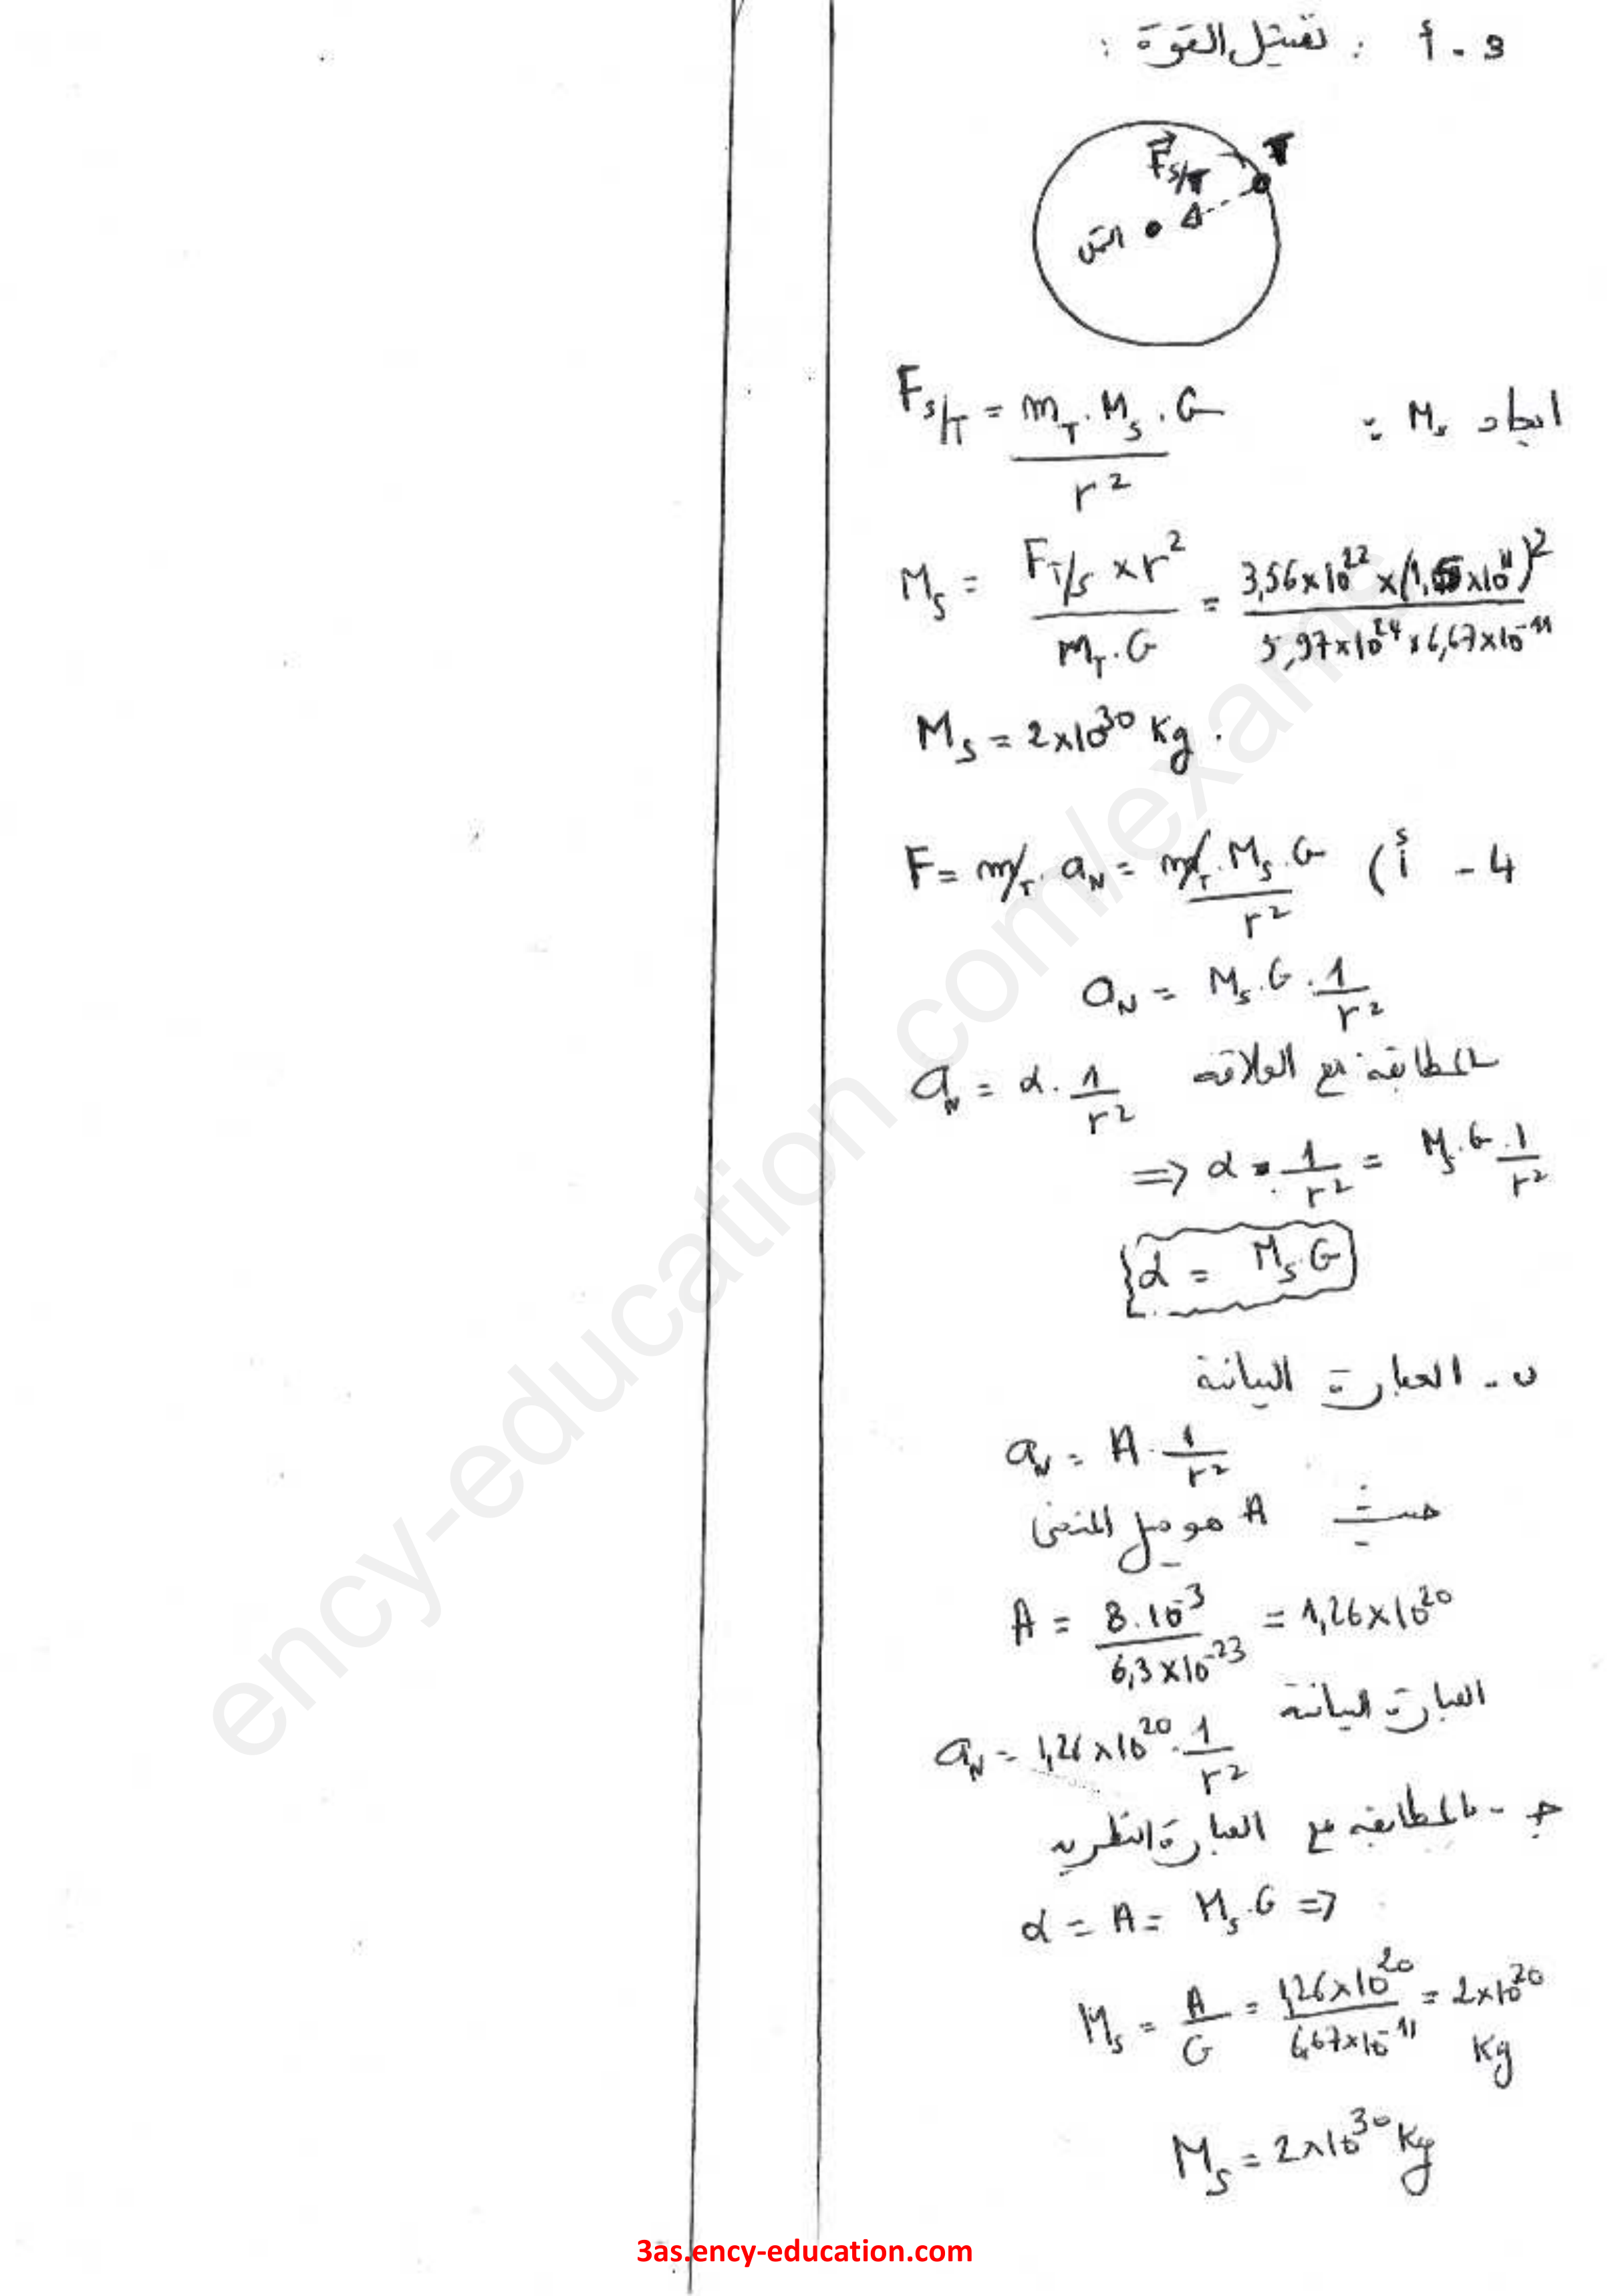 3 - أ : تمثيل القوة :
T
F⃗ S/T
الشمس
ايجاد Ms :
F S/T = m_T . M_S . G / r²
M_S = F T/S × r² / m_T . G = 3,56×10²² × (1,5×10¹¹)² / 5,97×10²⁴ × 6,67×10⁻¹¹
M_S = 2×10³⁰ Kg .
4 - أ) F = m_T . a_N = m_T . M_S . G / r²
a_N = M_S . G . 1/r²
بالمطابقة مع العلاقة a_N = α . 1/r²
=> α . 1/r² = M_S . G . 1/r²
α = M_S G
ب - العبارة البيانية
a_N = A . 1/r²
حيث A هو ميل المنحنى
A = 8.10⁻³ / 6,3×10⁻²³ = 1,26×10²⁰
العبارة البيانية
a_N = 1,26×10²⁰ . 1/r²
ج - بالمطابقة مع العبارة النظرية
α = A = M_S . G =>
M_S = A/G = 1,26×10²⁰ / 6,67×10⁻¹¹ = 2×10³⁰ Kg
M_S = 2×10³⁰ Kg
ency-education.com/exams
3as.ency-education.com